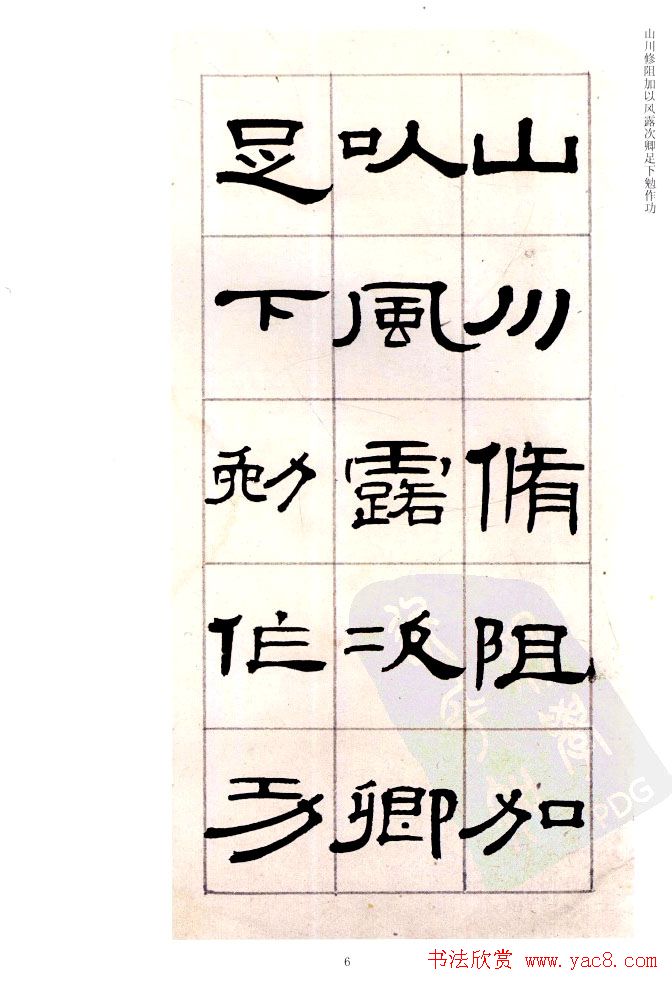 山川修阻加以风露次卿足下勉作功
山川脩阻加
以風露次卿
足下勉作功
PDG
6
书法欣赏 www.yac8.com